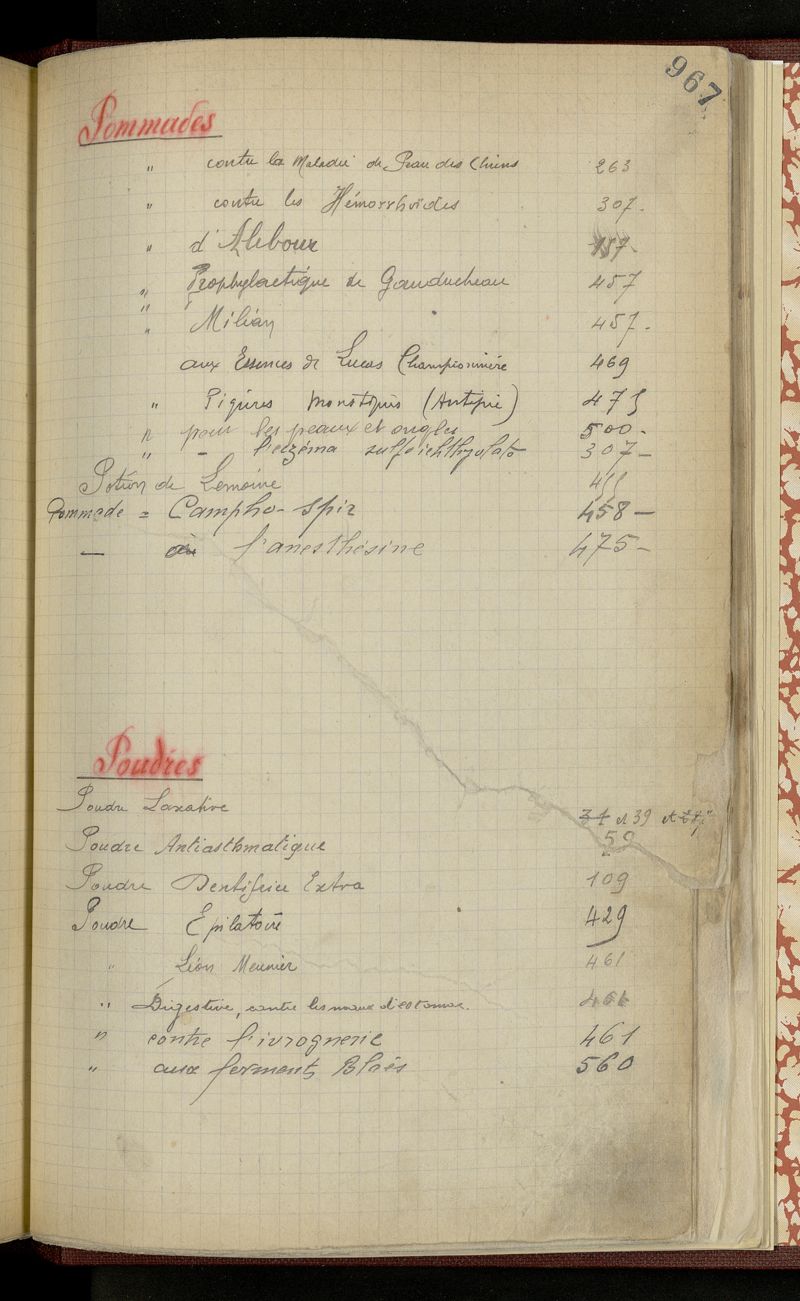 967
Pommades
" contre la Maladie de Peau des Chiens 263
" contre les Hémorrhoïdes 307-
" d'Alibour 157-
" Prophylactique de Gauducheau 457
" Milian 457-
aux Essences de Lucas Championnière 469
" Piqûres Moustiques (Antipic) 475
" pour les peaux et ongles 500-
" - l'eczéma sulfoichthyolato 307-
Potion de Lemoine
Pommade = Campho-Spir 458-
- à l'anesthésine 475-
Poudres
Poudre Laxative 34 et 39 et
Poudre Antiasthmatique 59
Poudre Dentifrice Extra 109
Poudre Epilatoire 429
" Léon Meunier 461
" Digestive, contre les maux d'estomac. 461
" contre l'ivrognerie 461
" aux ferments 560